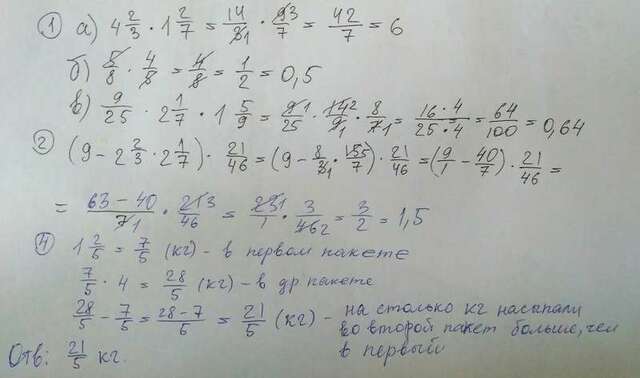 ① а) 4 2/3 · 1 2/7 = 14/3 1 · 9 3/7 = 42/7 = 6
б) 5/8 · 4/5 = 4/8 = 1/2 = 0,5
в) 9/25 · 2 1/7 · 1 5/9 = 9 1/25 · 14 2/9 1 · 8/7 1 = 16·4/25·4 = 64/100 = 0,64
② (9 - 2 2/3 · 2 1/7) · 21/46 = (9 - 8/3 1 · 15 5/7) · 21/46 = (9/1 - 40/7) · 21/46 =
= 63-40/7 1 · 21 3/46 = 23 1/1 · 3/46 2 = 3/2 = 1,5
④ 1 2/5 = 7/5 (кг) - в первом пакете
7/5 · 4 = 28/5 (кг) - в др пакете
28/5 - 7/5 = 28-7/5 = 21/5 (кг) - на столько кг насыпали
во второй пакет больше, чем
в первый
Отв: 21/5 кг.